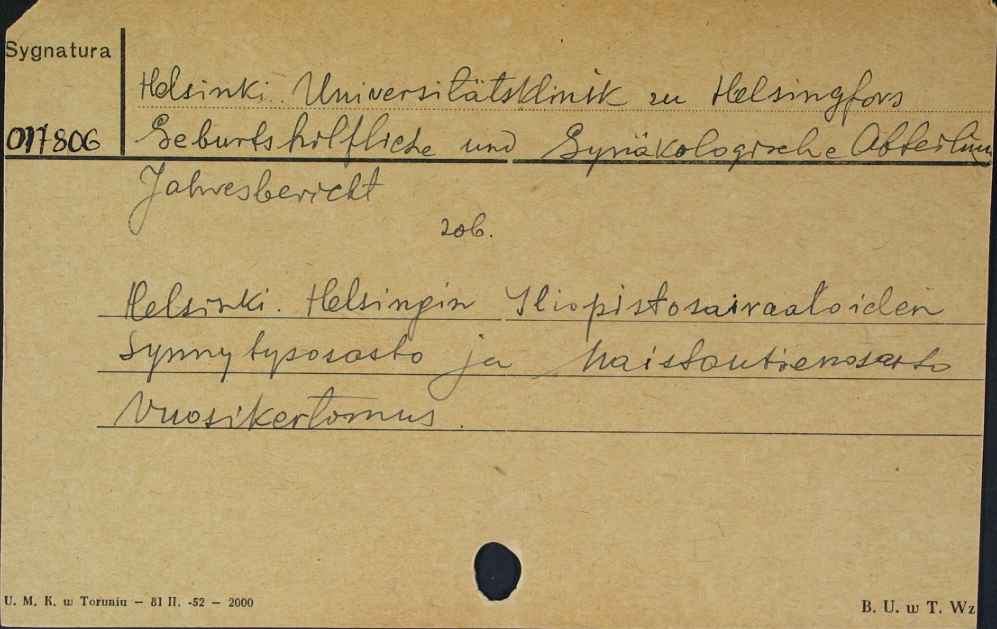 Sygnatura
Helsinki. Universitätsklinik zu Helsingfors
017806 Geburtshilfliche und Gynäkologische Abteilun
Jahresbericht
zob.
Helsinki. Helsingin Yliopistosairaaloiden
Synnytysosasto ja Naistautienosasto
Vuosikertomus.
U. M. K. w Toruniu — 81 II. -52 — 2000
B. U. w T. Wz